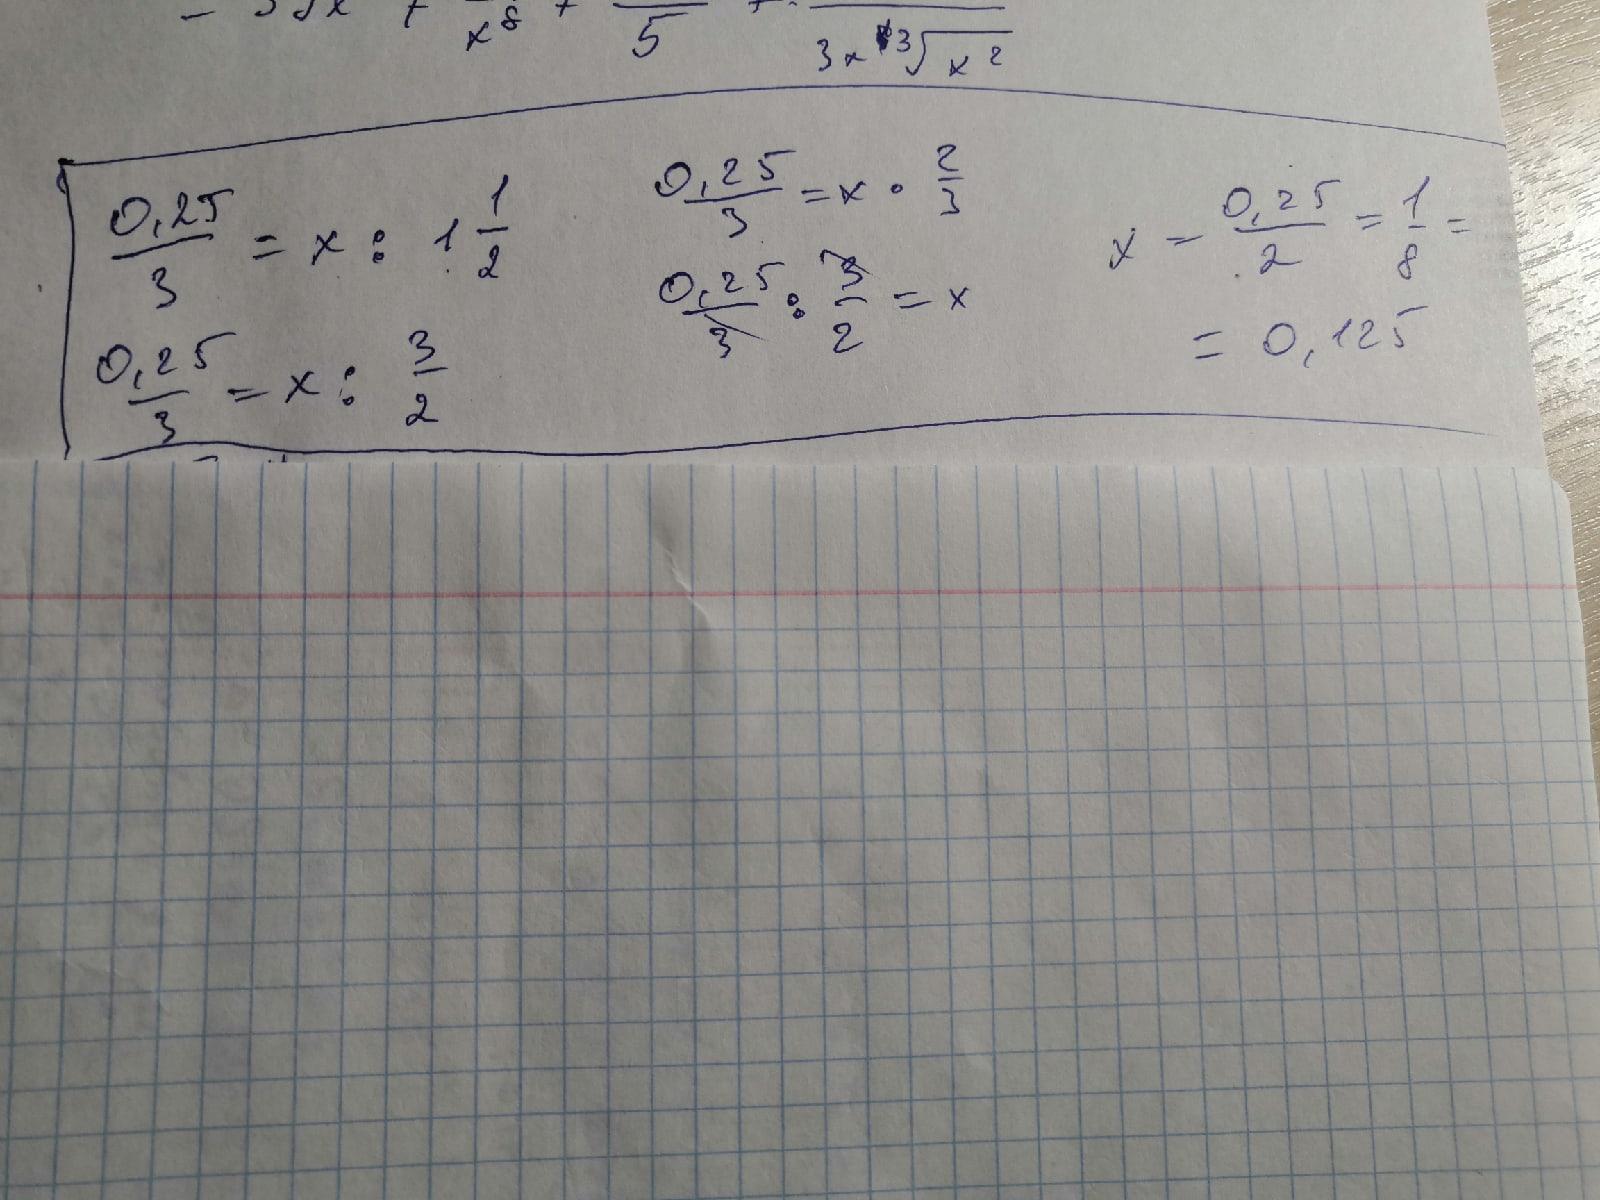 x⁸ + 5 + 3x ³√x²
0,25/3 = x : 1 1/2
0,25/3 = x : 3/2
0,25/3 = x · 2/3
0,25/3 : 3/2 = x
x = 0,25/2 = 1/8 =
= 0,125